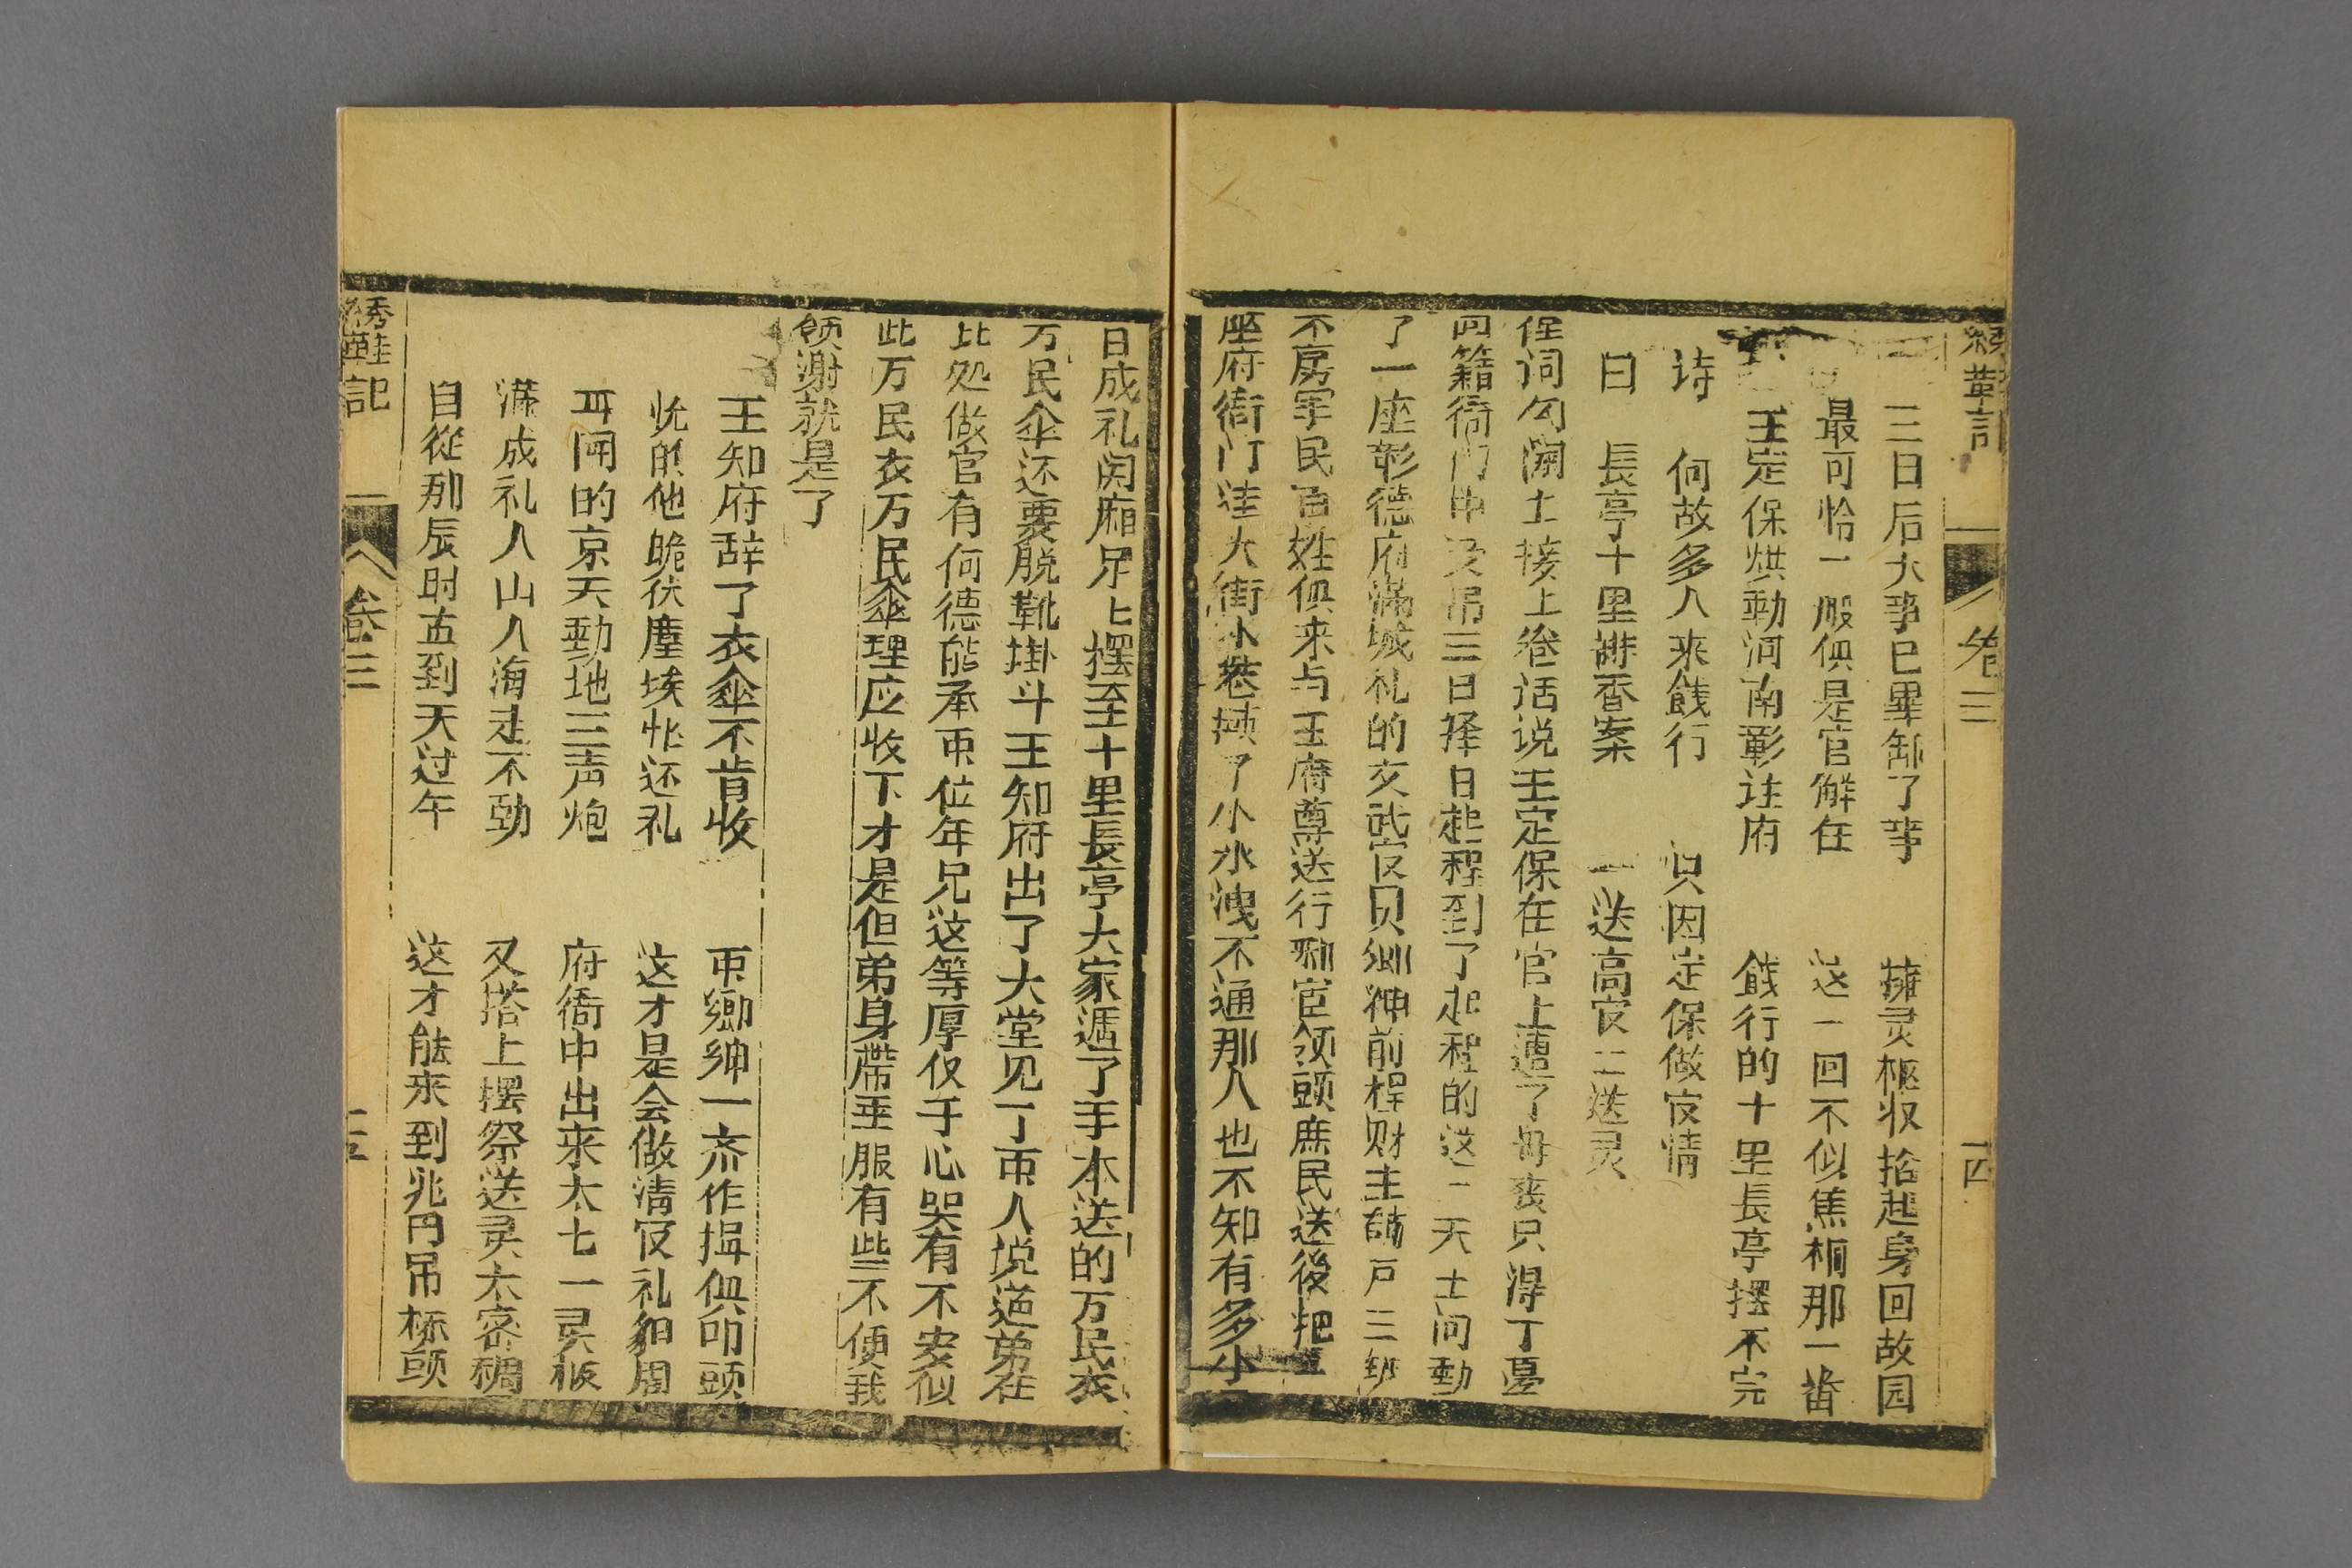 綉鞋記 卷三 十四
三日后大事已畢卸了事 擁灵柩収拾起身回故园
最可恰一般俱是官解任 这一回不似焦桐那一畨
王定保烘動河南彰德府 餞行的十里長亭摆不完
诗 何故多人来餞行 只因定保做官情
曰 長亭十里擺香案 一送高官二送灵
侄词勾開土接上卷话说王定保在官上遭了母丧只得丁憂
回籍衙门中受吊三日择日起程到了起程的这一天士间動
了一座彰德府满城礼的文武官员鄉神前桯财主鋪戸三班
不房军民百姓俱来与王府尊送行鄉宦领頭庶民送後把這
座府衙门洼大街小巷填了小水洩不通那人也不知有多小
日成礼関廂早上摆至十里長亭大家逓了手本送的万民衣
万民伞还要脱靴掛斗王知府出了大堂见了帀人说道弟在
此処做官有何德能承帀位年兄这等厚仪于心哭有不安似
此万民衣万民傘理应收下才是但弟身帶重服有些不便我
领謝就是了
王知府辞了衣傘不肯收 帀鄉绅一齐作揖俱叩頭
忙的他跪伏塵埃忙还礼 这才是会做清官礼貌周
耳闻的京天動地三声炮 府衙中出来太七一灵柩
满成礼人山人海走不動 又搭上摆祭送灵太密稠
自從那辰时直到天过午 这才能来到兆門吊桥頭
綉鞋記 卷三 十五